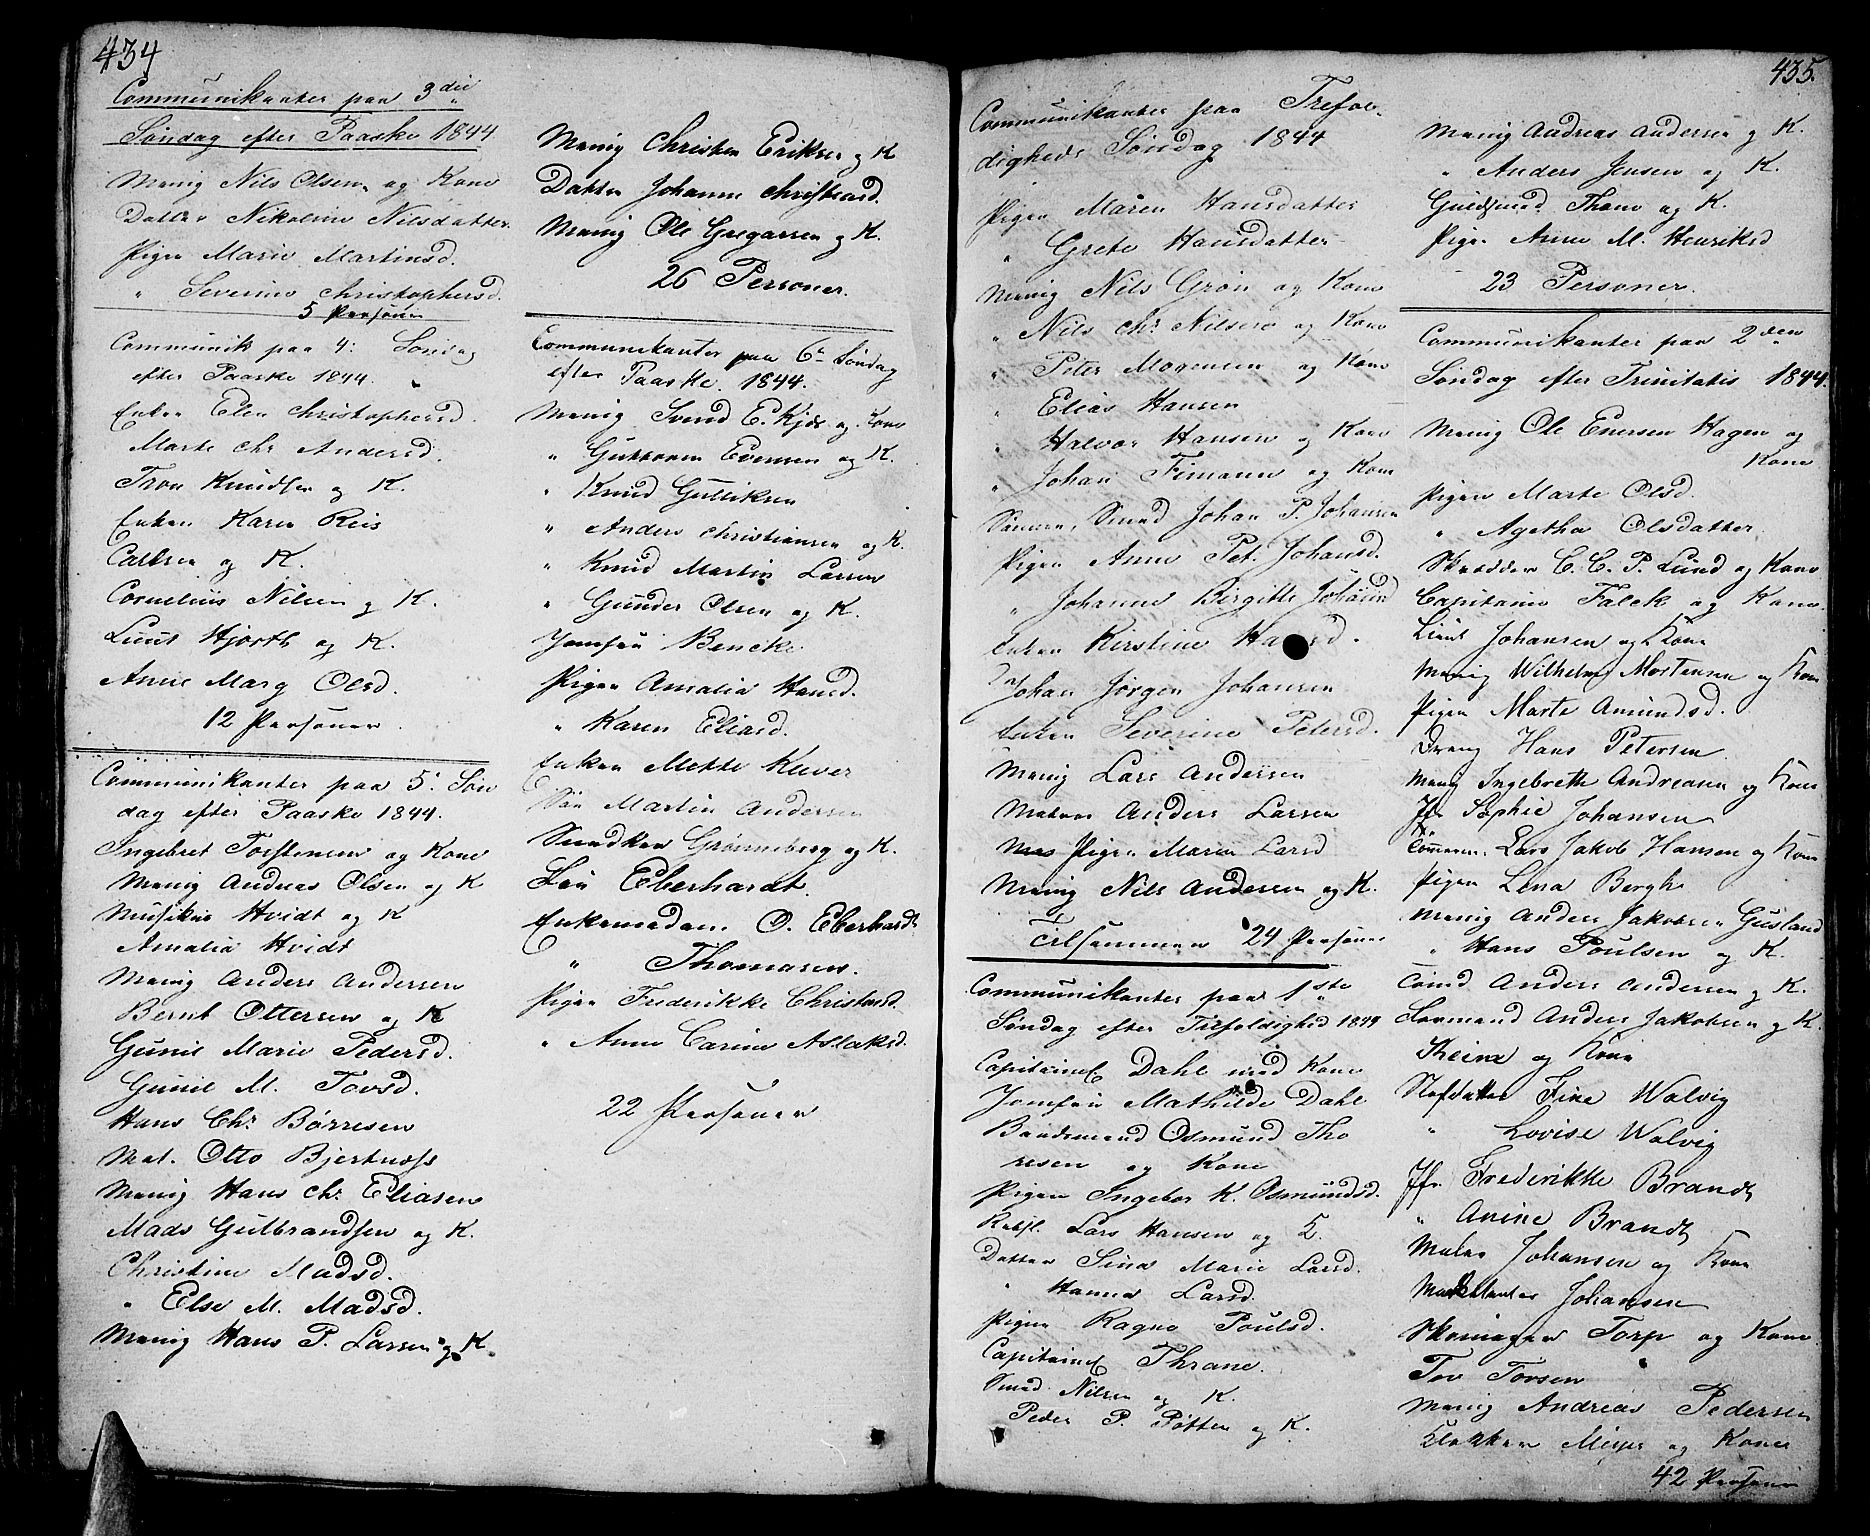 434
Communikanter paa 3die
Søndag efter Paaske 1844
Menig Nils Olsen og Kone
Datter Nikoline Nilsdatter
Pigen Marie Martinsd.
" Severine Christophersd.
5 Personer
Communik paa 4: Søndag
efter Paaske 1844.
Enken Elen Christophersd.
Marte Chr Andersd.
Tron Knudsen og K.
Enken Karen Reis
Carlsen og K.
Cornelius Nilsen og K.
Lieut Hjorth og K.
Anne Marg Olsd.
12 Personer
Communikanter paa 5: Søn
dag efter Paaske 1844.
Ingebret Torstensen og Kone
Menig Andreas Olsen og K
Musiker Hvidt og K
Amalia Hvidt
Menig Anders Andersen
Bernt Ottersen og K
Gunil Marie Pedersd.
Gunil M. Tovsd.
Hans Chr. Børresen
Mat. Otto Bjertnæss
Menig Hans Chr. Eliasen
Mads Gulbrandsen og K.
Christine Madsd.
" Else M. Madsd.
Menig Hans P. Larsen og K.
Menig Christen Eriksen og K
Datter Johanne Christensd.
Menig Ole Gregarsen og K.
26 Personer.
Communikanter paa 6te Søndag
efter Paaske 1844.
Menig Svend E. Kjær og Kone
" Guttorm Evensen og K.
" Knud Gulliksen
" Anders Christiansen og K.
" Knud Martin Larsen
" Gunder Olsen og K.
Jomfru Bencke
Pigen Amalia Hansd.
" Karen Eliasd.
Enken Mette Kuver
Søn Martin Andersen
Grønneberg og K.
Eberhardt.
Enkemadam O. Eberhardt
" Thomasen.
Pigen Frederikke Christensd.
" Anne Carine Aslaksd.
22 Personer
435.
Communikanter paa Trefol-
digheds Søndag 1844
Pigen Maren Hansdatter
" Grete Hansdatter
Menig Nils Grøn og Kone
" Nils Chr. Nilsen og Kone
" Peter Mogensen og Kone
" Elias Hansen
" Halvor Hansen og Kone
" Johan Fimann og Kone
Sønnen, Smed Johan P. Johansen
Pigen Anne Pet. Johansd.
" Johanne Birgitte Johansd
Enken Kirstine
Johan Jørgen Johansen
Enken Severine Petersd.
Menig Lars Andersen
Matros Anders Larsen
Pigen Maren Larsd
Menig Nils Andersen og K.
Tilsammen 24 Personer
Communikanter paa 1ste
Søndag efter Trefoldighed 1844
Capitaine Dahl med Kone
Jomfru Mathilde Dahl
Baadsmand Osmund Tho
resen og Kone
Pigen Ingebor K. Osmundsd.
Lars Hansen og
Datter Sina Marie Larsd.
" Hanna Larsd.
Pigen Ragne Poulsd.
Capitaine Thrane.
Smed Nilsen og K.
Peder P. Pøtten og K.
Menig Andreas Andersen og K.
" Anders Jensen og K.
Guldsmed Thane og K.
Pigen Anne M. Henriksd
23 Personer.
Communikanter paa 2den
Søndag efter Trinitatis 1844.
Menig Ole Enersen Hagen og
Kone
Pigen Marte Olsd.
" Agethe Olsdatter
Skrædder C. C. P. Lund og Kone
Capitaine Falck og Kone.
Lieut Johansen og Kone
Menig Wilhelm Mortensen og Kone
Pigen Marte Amundsd.
Dreng Hans Petersen
Menig Ingebreth Andreasen og Kone
Jfr Sophie Johansen
Tømmerm. Lars Jakob Hansen og Kone
Pigen Lena Bergh
Menig Anders Jakobsen Gusland
" Hans Poulsen og K.
Anders Andersen og K.
Formand Anders Jakobsen og K.
Theine og Kone
Stifdatter Fine Walvig
" Lovise Walvig
Jfr. Frederikke Brandt
" Anine Brandt
Maler Johansen og Kone
Johansen
Torp og Kone
Tov Tovsen
Menig Andreas Pedersen
Klokker Meyer og Kone
42 Personer